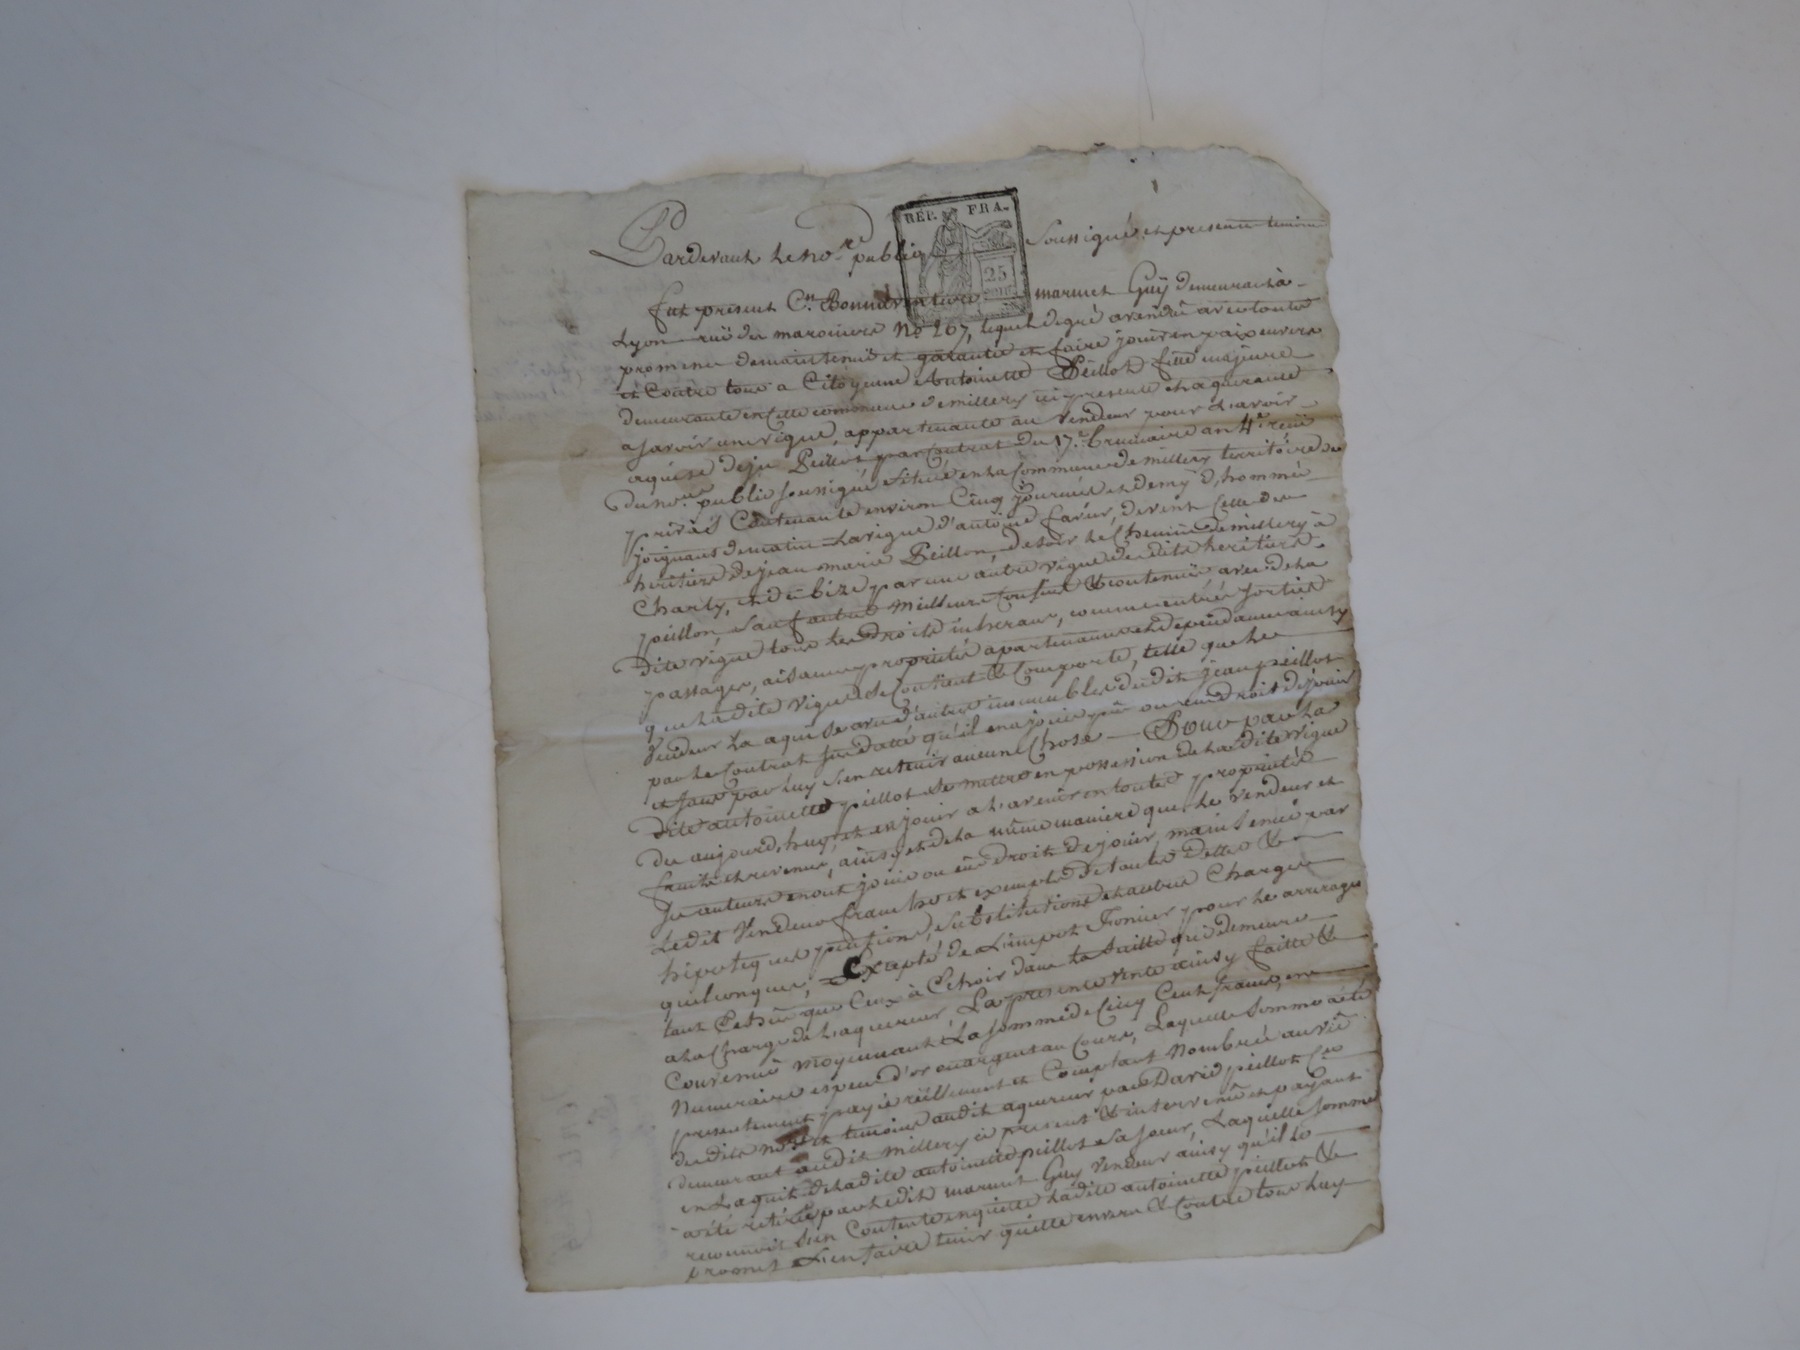 RÉP. FRA.
25
Pardevant le no.re public soussigné et presents temoins
fut present C.n Bonnaventure marmet Guÿ demeurant à
Lyon rüe des maronniers N.o 267, lequel degré avendû avec toutes
promesses demaintenüe et garantie et faire jouir en paix envers
et Contre tous a Citoÿenne Antoinette Peillot fille majeure
demeurante en cette commune de millery icy presente et aquerante
asavoir une vigne, appartenante au vendeur pour L'avoir
aquise de jn Peillot par Contrat du 17.e brumaire an 4.e reçu
du no.re public soussigné située en la Commune de millery territoire des
Contenante environ Cinq journées et demy d'hommée
joignant de matin La vigne d'antoine, devent Celle des
heritiers de jean marie Peillon, de soir le Chemin de millery à
Charly, et de bize par une autre vigne desdits heritiers
peillon, sauf autres meilleurs Confins & contenüe avec de la
dite vigne tous les droits inherans, comme entrées sorties
passages, aisances proprietés apartenances et dependances ainsy
que la dite vigne se Contient & Comporte, telle que le
vendeur La aquise avec d'autres immeubles du dit jean peillot
par le Contrat sus datté qu'il en a jouis pû ou eu droit de jouir
et sans par luy s'en retenir aucune Chose — Pour par la
dite antoinette peillot se mettre en possession de la dite vigne
des aujourd'huy, et en jouir a l'avenir en toutes proprietés
fruits et revenus, ainsy et de la même maniere que le vendeur et
ses auteurs en ont jouis ou eus droit de jouir, maintenüe par
Ledit Vendeur franche et exempte de toutes dettes &
hipoteques pentions, substitutions et autres Charges
quelconques, Excepté de L'impot foncier pour les arrerages
tant Echüs que Ceux à Echoir dans la suitte qui demeure
a la Charge de L'aquereur, La presente vente ainsy faitte &
Convenüe moyennant La somme de Cinq Cent francs, en
Numeraire espece d'or ou argent au Cours, Laquelle somme a été
presentement payée réellement et Comptant Nombrée au vû
desdits no.re et temoins audit aquereur par David peillot
demeurant audit millery ici present & intervenû et payant
en Laquit de ladite antoinette peillot sa soeur, Laquelle somme
a été retirée par ledit marmet Guy Vendeur ainsy qu'il le
reconnoit s'en Contente en quitte ladite antoinette peillot &
promet L'en faire tenir quitte envers & Contre tous luy